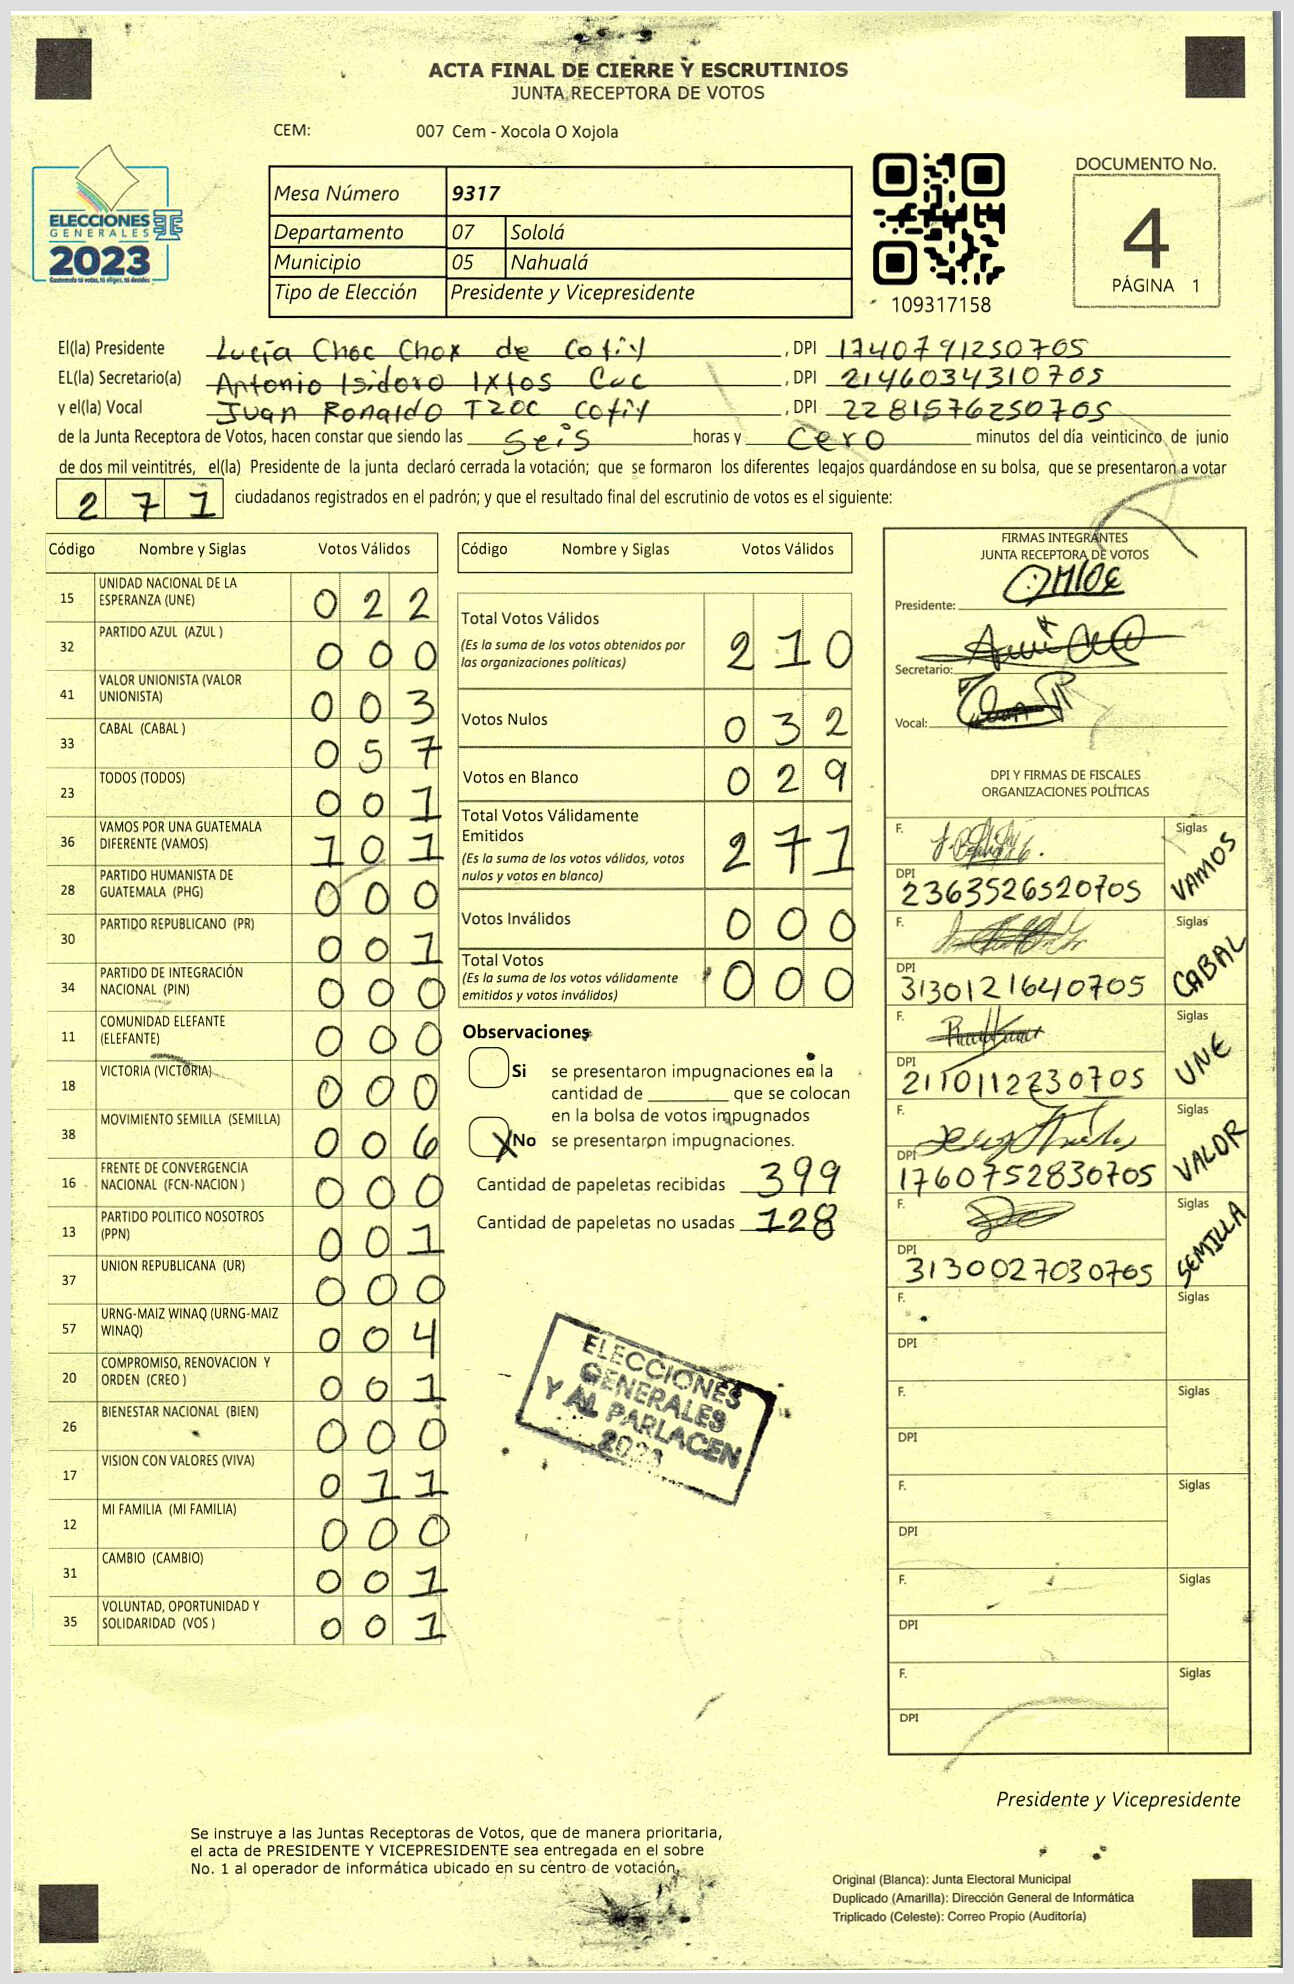 ACTA FINAL DE CIERRE Y ESCRUTINIOS
JUNTA RECEPTORA DE VOTOS
CEM: 007 Cem - Xocola O Xojola
ELECCIONES
GENERALES
2023
Guatemala tú votas, tú eliges, tú decides
Mesa Número 9317
Departamento 07 Sololá
Municipio 05 Nahualá
Tipo de Elección Presidente y Vicepresidente
109317158
DOCUMENTO No.
4
PÁGINA 1
El(la) Presidente Lucía Choc Chox de Cotiy, DPI 1740791250705
EL(la) Secretario(a) Antonio Isidoro Ixtos Cuc, DPI 2146034310705
y el(la) Vocal Juan Ronaldo Tzoc Cotiy, DPI 2281576250705
de la Junta Receptora de Votos, hacen constar que siendo las seis horas y cero minutos del día veinticinco de junio
de dos mil veintitrés, el(la) Presidente de la junta declaró cerrada la votación; que se formaron los diferentes legajos guardándose en su bolsa, que se presentaron a votar
271 ciudadanos registrados en el padrón; y que el resultado final del escrutinio de votos es el siguiente:
Código Nombre y Siglas Votos Válidos
15 UNIDAD NACIONAL DE LA ESPERANZA (UNE) 022
32 PARTIDO AZUL (AZUL ) 000
41 VALOR UNIONISTA (VALOR UNIONISTA) 003
33 CABAL (CABAL ) 057
23 TODOS (TODOS) 001
36 VAMOS POR UNA GUATEMALA DIFERENTE (VAMOS) 101
28 PARTIDO HUMANISTA DE GUATEMALA (PHG) 000
30 PARTIDO REPUBLICANO (PR) 001
34 PARTIDO DE INTEGRACIÓN NACIONAL (PIN) 000
11 COMUNIDAD ELEFANTE (ELEFANTE) 000
18 VICTORIA (VICTORIA) 000
38 MOVIMIENTO SEMILLA (SEMILLA) 006
16 FRENTE DE CONVERGENCIA NACIONAL (FCN-NACION ) 000
13 PARTIDO POLITICO NOSOTROS (PPN) 001
37 UNION REPUBLICANA (UR) 000
57 URNG-MAIZ WINAQ (URNG-MAIZ WINAQ) 004
20 COMPROMISO, RENOVACION Y ORDEN (CREO ) 001
26 BIENESTAR NACIONAL (BIEN) 000
17 VISION CON VALORES (VIVA) 011
12 MI FAMILIA (MI FAMILIA) 000
31 CAMBIO (CAMBIO) 001
35 VOLUNTAD, OPORTUNIDAD Y SOLIDARIDAD (VOS ) 001
Código Nombre y Siglas Votos Válidos
Total Votos Válidos 210
(Es la suma de los votos obtenidos por
las organizaciones políticas)
Votos Nulos 032
Votos en Blanco 029
Total Votos Válidamente
Emitidos 271
(Es la suma de los votos válidos, votos
nulos y votos en blanco)
Votos Inválidos 000
Total Votos 000
(Es la suma de los votos válidamente
emitidos y votos inválidos)
Observaciones
Si se presentaron impugnaciones en la
cantidad de ________ que se colocan
en la bolsa de votos impugnados
X No se presentaron impugnaciones.
Cantidad de papeletas recibidas 399
Cantidad de papeletas no usadas 128
ELECCIONES
GENERALES
Y AL PARLACEN
2023
FIRMAS INTEGRANTES
JUNTA RECEPTORA DE VOTOS
Presidente:
Secretario:
Vocal:
DPI Y FIRMAS DE FISCALES
ORGANIZACIONES POLÍTICAS
F. Siglas VAMOS
DPI 2363526520705
F. Siglas CABAL
DPI 3130121640705
F. Siglas UNE
DPI 2110112230705
F. Siglas VALOR
DPI 1760752830705
F. Siglas SEMILLA
DPI 3130027030705
F. Siglas
DPI
F. Siglas
DPI
F. Siglas
DPI
F. Siglas
DPI
F. Siglas
DPI
Presidente y Vicepresidente
Se instruye a las Juntas Receptoras de Votos, que de manera prioritaria,
el acta de PRESIDENTE Y VICEPRESIDENTE sea entregada en el sobre
No. 1 al operador de informática ubicado en su centro de votación.
Original (Blanca): Junta Electoral Municipal
Duplicado (Amarilla): Dirección General de Informática
Triplicado (Celeste): Correo Propio (Auditoría)